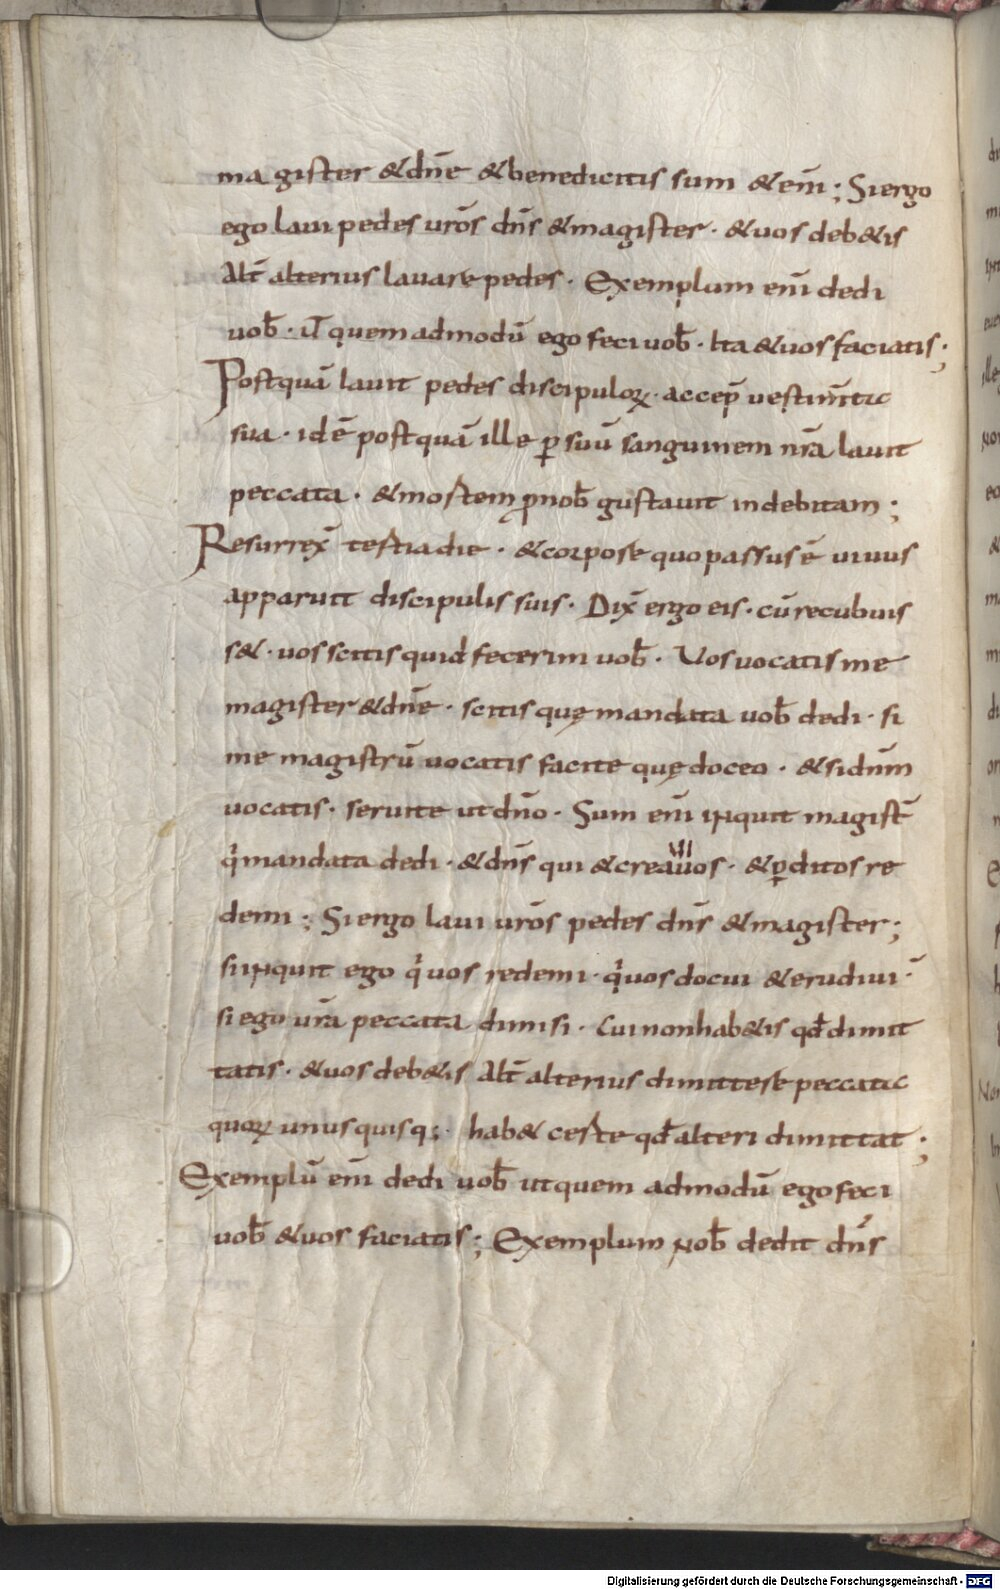 magister &dn̄e &benedicitis sum &enī; Siergo
ego laui pedes ur̄os dn̄s &magister· &uos deb&is
Alt̄ alterius lauare pedes· Exemplum enī dedi
uob̄· ut̄ quemadmodū ego feci uob̄· Ita &uos faciatis;
Postquā lauit pedes discipuloꝝ· accep̄ uestim̄ta
sua· idē postquā ille ꝑ suū sanguinem nr̄a lauit
peccata· &mortem ꝓnob̄ gustauit indebitam;
Resurrex̄ tertiadie· &corpore quo passus ē uiuus
apparuit discipulis suis· Dix̄ ergo eis· cū recubuis
s&· uos scitis quid fecerim uob̄· Uos uocatis me
magister &dn̄e· scitis quę mandata uob̄ dedi· si
me magistrū uocatis facite quę doceo· &sidn̄m
uocatis· seruite ut dn̄o· Sum enī inquit magist̄
q̇mandata dedi· &dn̄s qui &creauiuos· &ꝑditos re
demi; Siergo laui ur̄os pedes dn̄s &magister;
siinquit ego q̇uos redemi· q̇uos docui &erudiui·
si ego ur̄a peccata dimisi· Cui nonhab&is qd̄ dimit
tatis· &uos deb&is Alt̄ alterius dimittere peccata
quoꝝ unusquisq;· hab& certe qd̄ alteri dimittat;
Exemplū enī dedi uob̄ utquem admodū ego feci
uob̄ &uos faciatis; Exemplum nob̄ dedit dn̄s
Digitalisierung gefördert durch die Deutsche Forschungsgemeinschaft - DFG